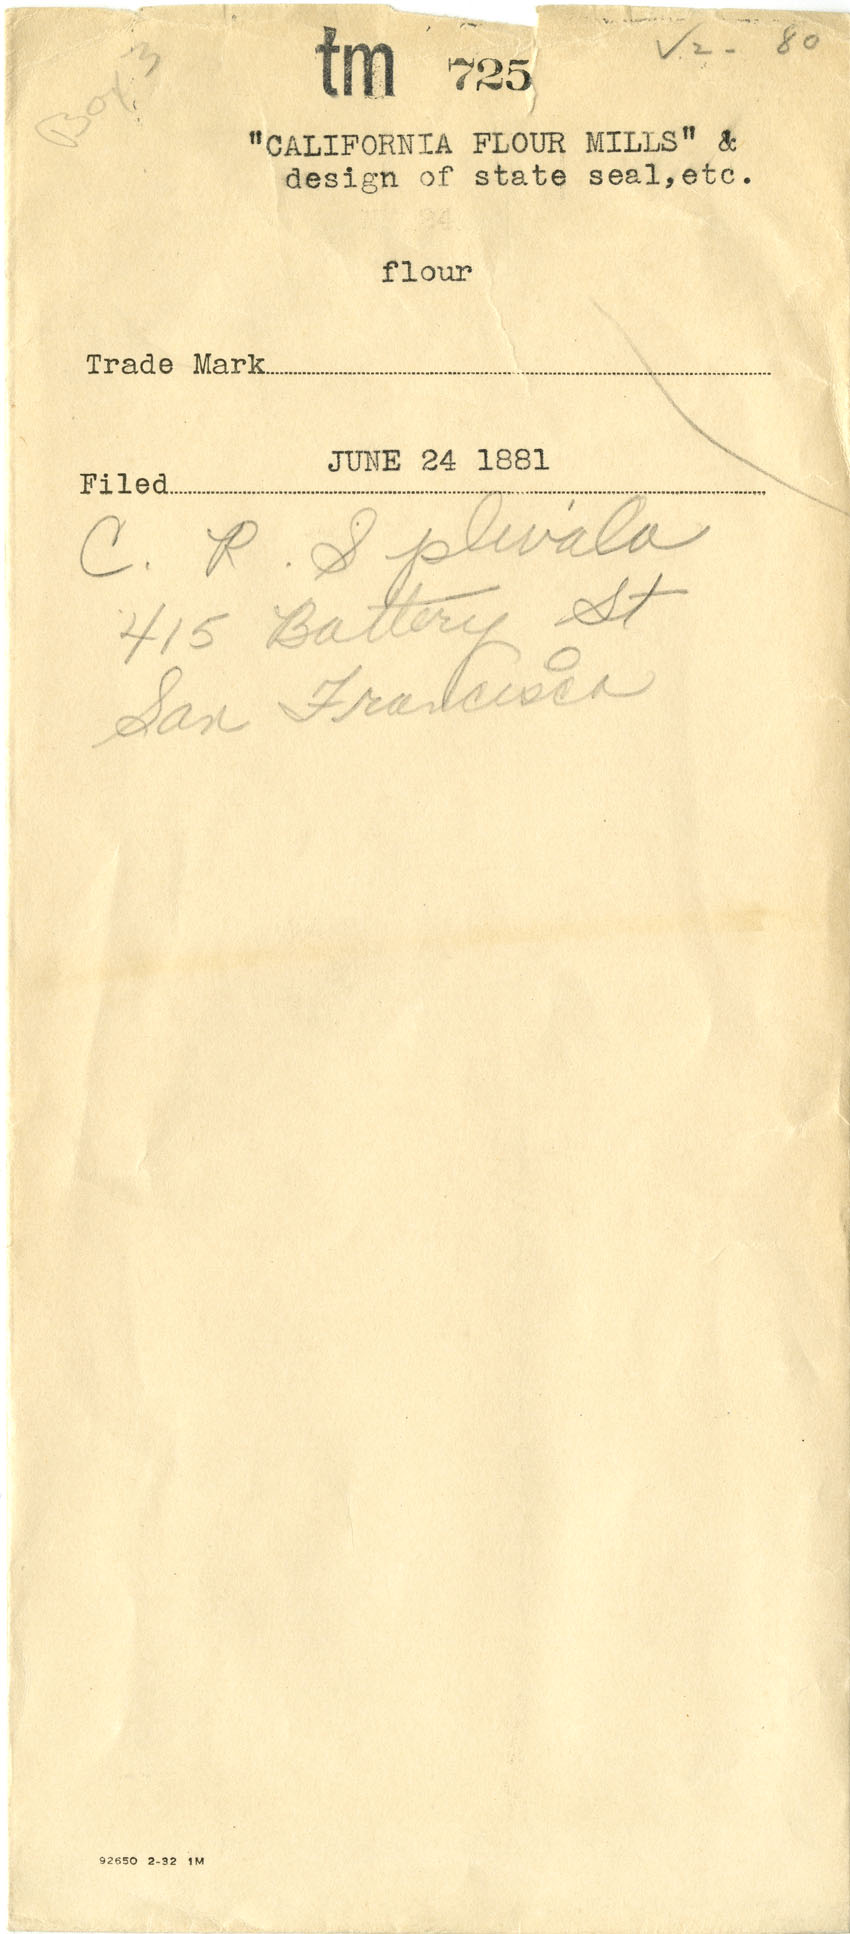 Box 3
tm 725
√2- 80
"CALIFORNIA FLOUR MILLS" &
design of state seal,etc.
flour
Trade Mark
Filed JUNE 24 1881
C. R. Splivalo
415 Battery St
San Francisco
92650 2-32 1M